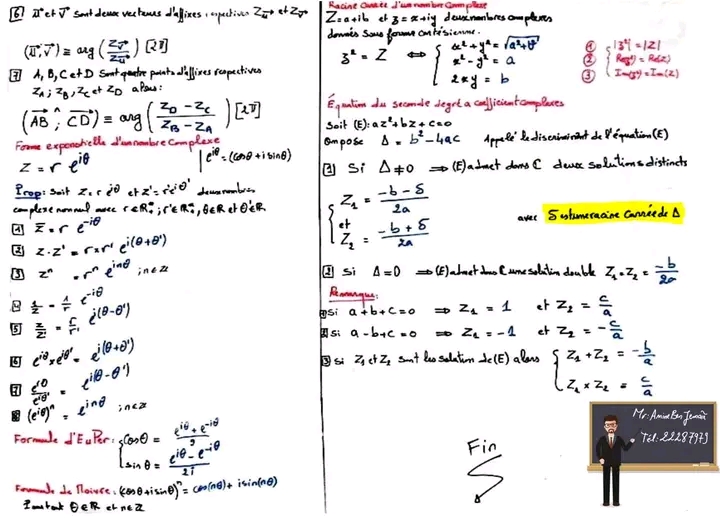 [6] u⃗ et v⃗ sont deux vecteurs d'affixes respectives Zu⃗ et Zv⃗
(u⃗, v⃗) ≡ arg (Zv⃗ / Zu⃗) [2π]
[7] A, B, C et D sont quatre points d'affixes respectives
ZA ; ZB, ZC et ZD alors :
(AB⃗ ; CD⃗) ≡ arg (ZD - ZC / ZB - ZA) [2π]
Forme exponentielle d'un nombre complexe
Z = r e^iθ | e^iθ = (cosθ + i sinθ)
Prop : Soit Z = r e^iθ et Z' = r' e^iθ' deux nombres
complexe non nul avec r ∈ ℝ*+ ; r' ∈ ℝ*+, θ ∈ ℝ et θ' ∈ ℝ
[1] Z̅ = r e^-iθ
[2] Z·Z' = r×r' e^i(θ+θ')
[3] Z^n = r^n e^inθ ; n∈ℤ
[4] 1/Z = 1/r e^-iθ
[5] Z/Z' = r/r' e^i(θ-θ')
[6] e^iθ × e^iθ' = e^i(θ+θ')
[7] e^iθ / e^iθ' = e^i(θ-θ')
[8] (e^iθ)^n = e^inθ ; n∈ℤ
Formule d'Euler : { cosθ = e^iθ + e^-iθ / 2
sinθ = e^iθ - e^-iθ / 2i
Formule de Moivre : (cosθ + i sinθ)^n = cos(nθ) + i sin(nθ)
Pour tout θ ∈ ℝ et n∈ℤ
Racine carrée d'un nombre complexe
Z = a + ib et z = x + iy deux nombres complexes
donnés sous forme cartésienne.
z² = Z ⟺ { x² + y² = √(a²+b²)
x² - y² = a
2xy = b
① |z²| = |Z|
② Re(z²) = Re(Z)
③ Im(z²) = Im(Z)
Équation du seconde degré à coefficient complexes
Soit (E) : az² + bz + c = 0
on pose Δ = b² - 4ac Appelé le discriminant de l'équation (E)
[1] Si Δ ≠ 0 ⟹ (E) admet dans ℂ deux solutions distincts
{ Z1 = -b - δ / 2a
et
Z2 = -b + δ / 2a
avec δ est une racine carrée de Δ
[2] Si Δ = 0 ⟹ (E) admet dans ℂ une solution double Z1 = Z2 = -b/2a
Remarque :
[1] Si a + b + c = 0 ⟹ Z1 = 1 et Z2 = c/a
[2] Si a - b + c = 0 ⟹ Z1 = -1 et Z2 = -c/a
[3] Si Z1 et Z2 sont les solution de (E) alors { Z1 + Z2 = -b/a
Z1 × Z2 = c/a
Fin
Mr: Amine Ben Jemaa
Tél: 22287979